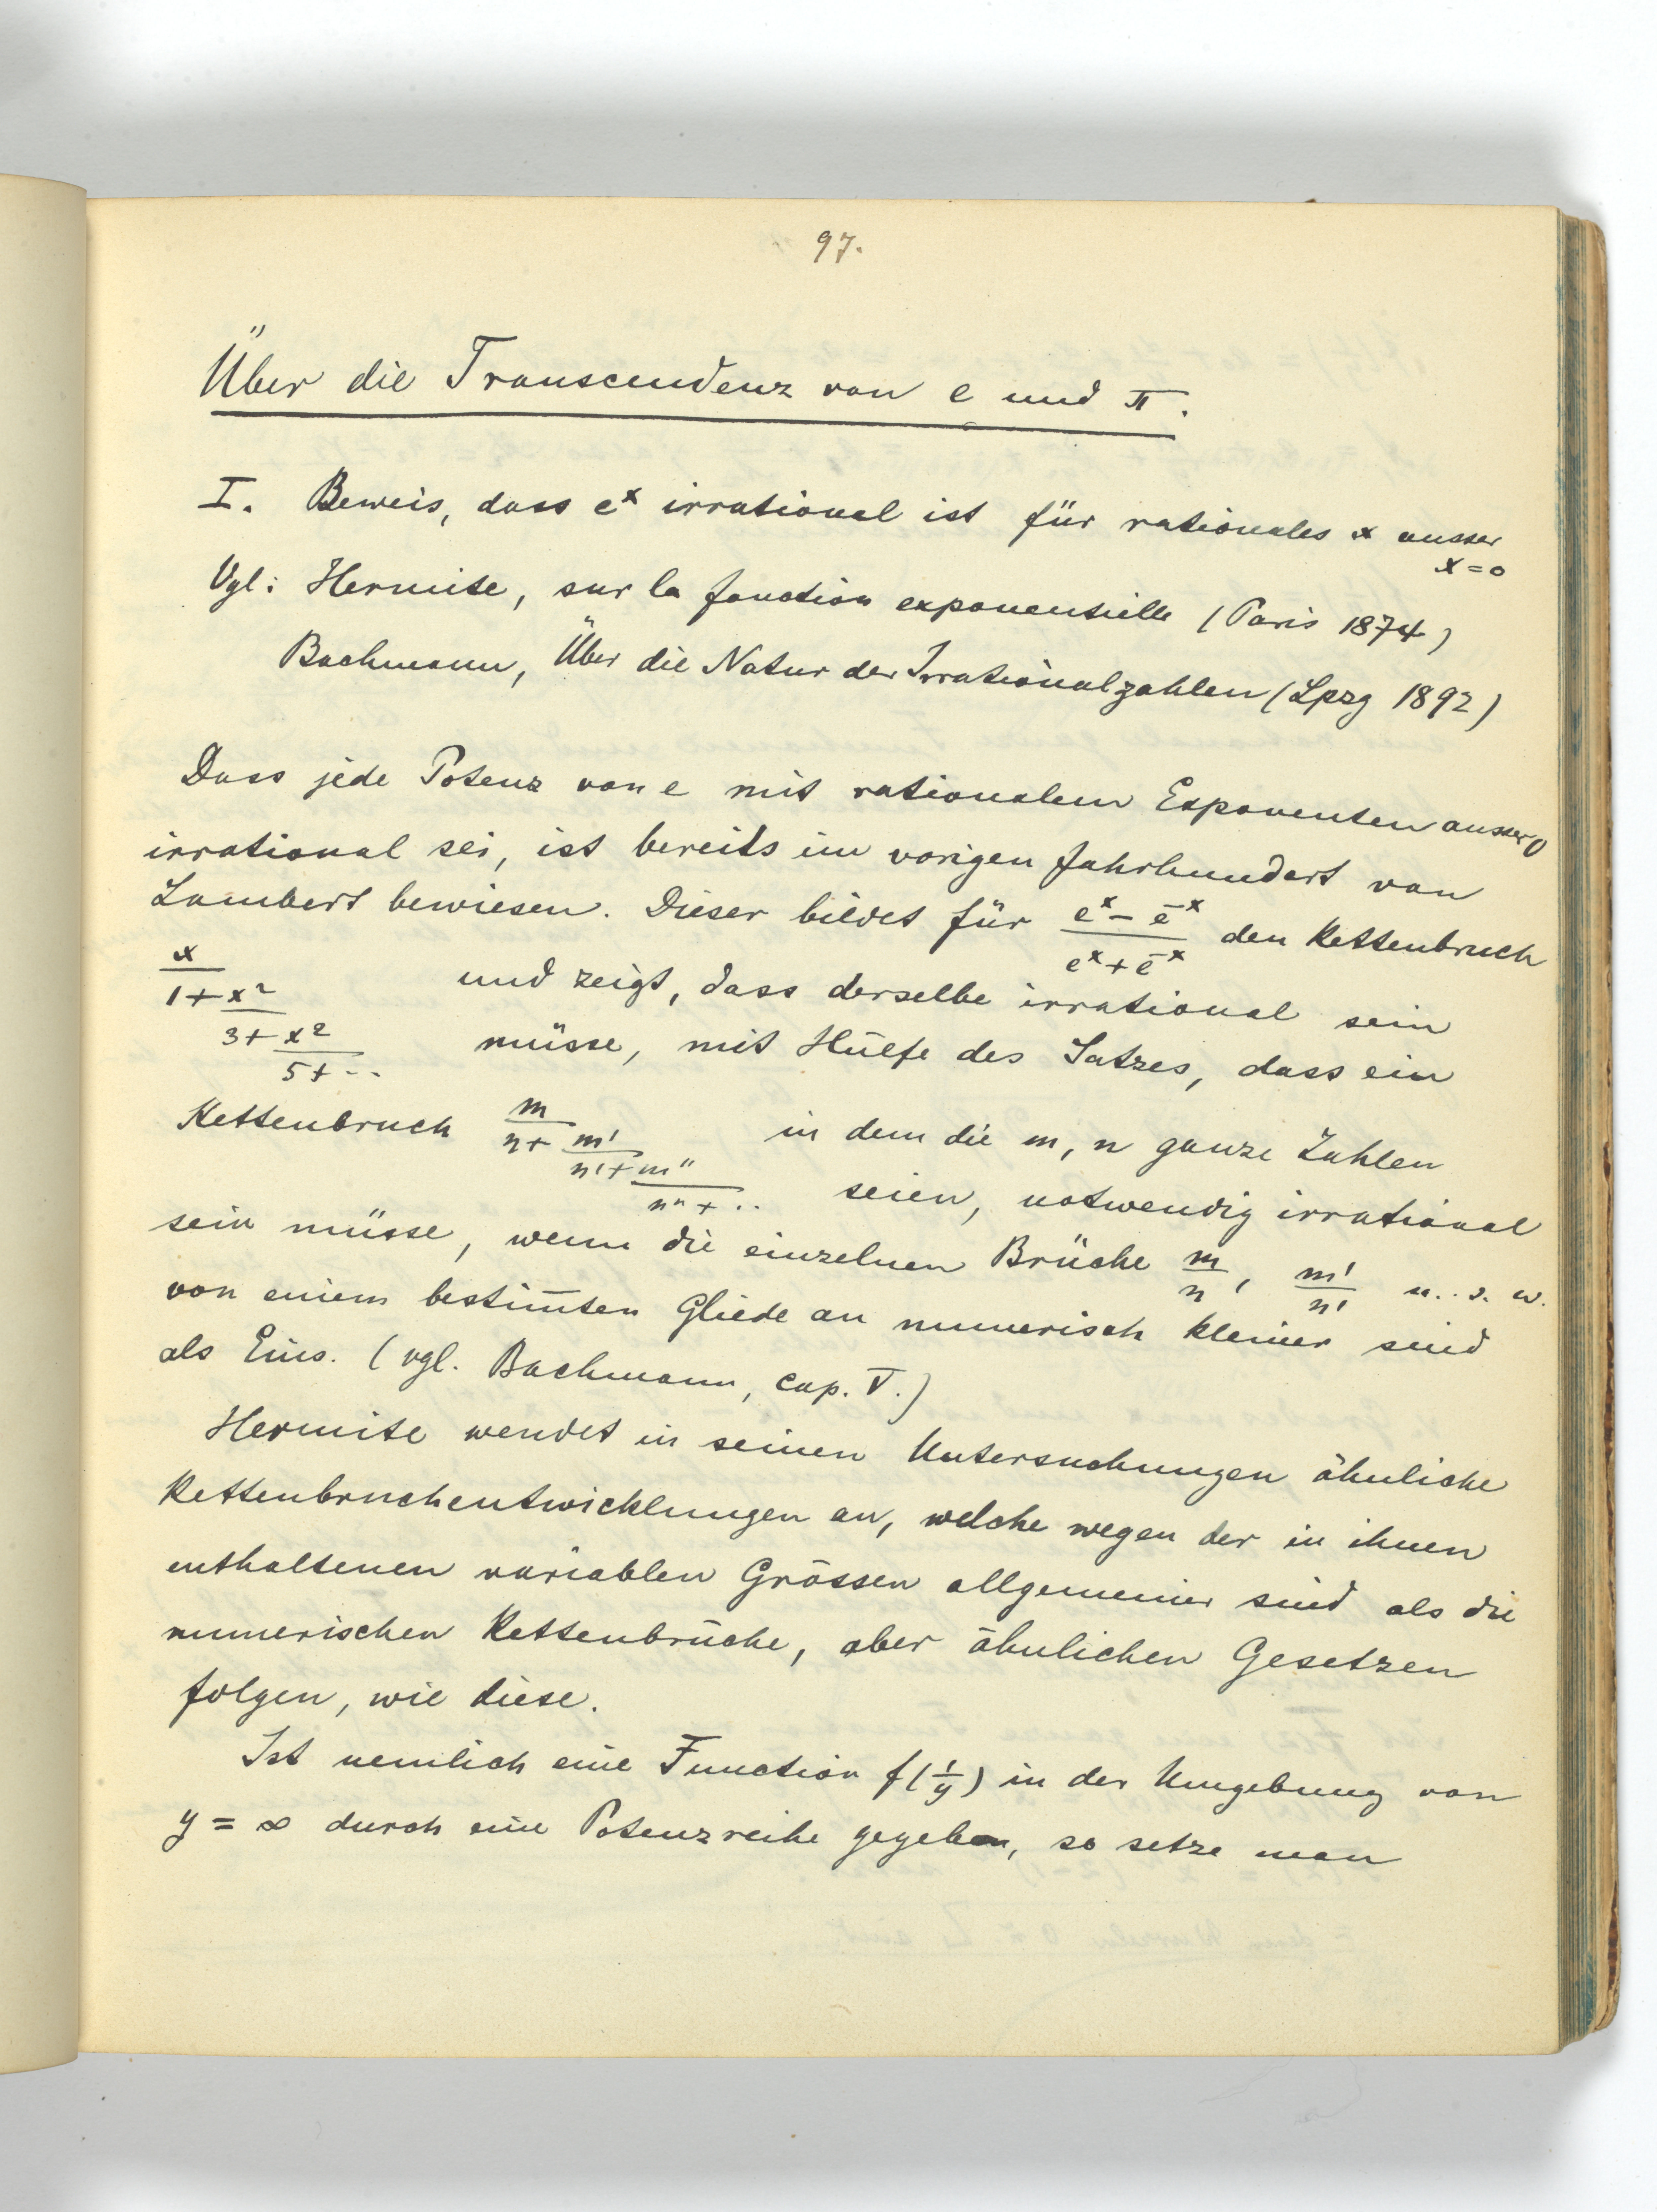 97.
Über die Transcendenz von e und π.
I. Beweis, dass e^x irrational ist für rationales x ausser
x=0
Vgl: Hermite, sur la fonction exponentielle (Paris 1874)
Bachmann, Über die Natur der Irrationalzahlen (Lpzg 1892)
Dass jede Potenz von e mit rationalem Exponenten ausser 0
irrational sei, ist bereits im vorigen Jahrhundert von
Lambert bewiesen. Dieser bildet für (e^x - e^-x)/(e^x + e^-x) den Kettenbruch
x/(1+x^2/(3+x^2/(5+..))) und zeigt, dass derselbe irrational sein
müsse, mit Hülfe des Satzes, dass ein
Kettenbruch m/(n+m'/(n'+m''/(n''+..))) in dem die m, n ganze Zahlen
seien, notwendig irrational
sein müsse, wenn die einzelnen Brüche m/n, m'/n' u. s. w.
von einem bestim̅ten Gliede an numerisch kleiner sind
als Eins. (vgl. Bachmann, cap. V.)
Hermite wendet in seinen Untersuchungen ähnliche
Kettenbruchentwicklungen an, welche wegen der in ihnen
enthaltenen variablen Grössen allgemeiner sind als die
numerischen Kettenbrüche, aber ähnlichen Gesetzen
folgen, wie diese.
Ist nemlich eine Function f(1/y) in der Umgebung von
y = ∞ durch eine Potenzreihe gegeben, so setze man